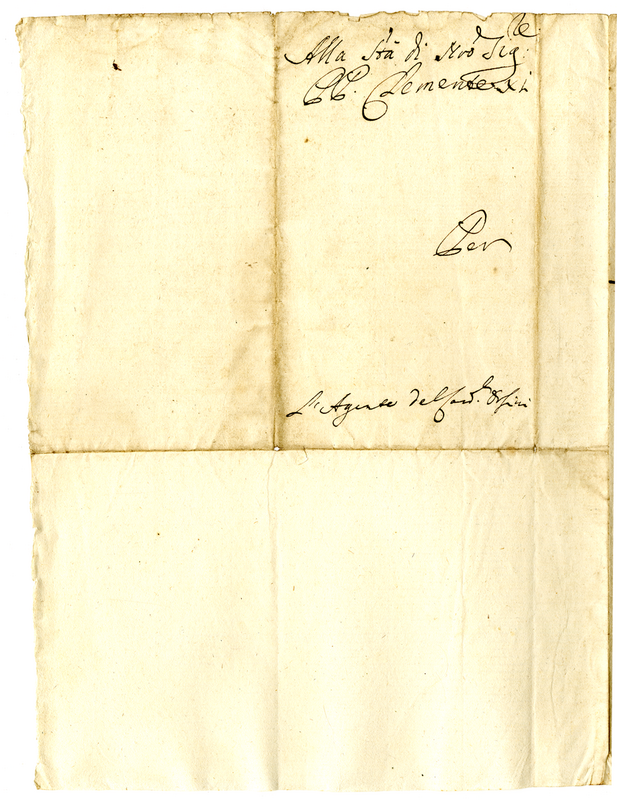 Alla Stà di Nrô Sigre
PP. Clemente XI
Per
L'Agente del Cardle Orsini